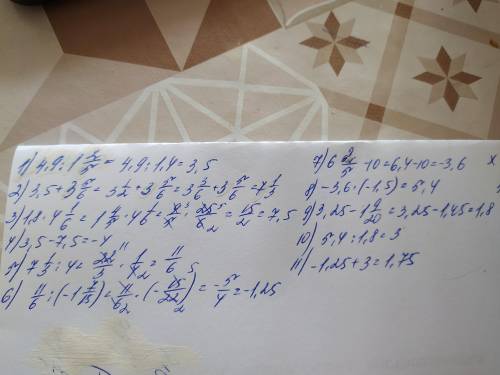 1) 4,9 : 1 2/5 = 4,9 : 1,4 = 3,5
2) 3,5 + 3 5/6 = 3 1/2 + 3 5/6 = 3 3/6 + 3 5/6 = 7 1/3
3) 1,8 · 4 1/6 = 1 4/5 · 4 1/6 = 9/5 · 25/6 = 15/2 = 7,5
4) 3,5 - 7,5 = -4
5) 7 1/3 : 4 = 22/3 · 1/4 = 11/6
6) 11/6 : (-1 7/15) = 11/6 · (-15/22) = -5/4 = -1,25
7) 6 2/5 - 10 = 6,4 - 10 = -3,6
8) -3,6 · (-1,5) = 5,4
9) 3,25 - 1 9/20 = 3,25 - 1,45 = 1,8
10) 5,4 : 1,8 = 3
11) -1,25 + 3 = 1,75
х